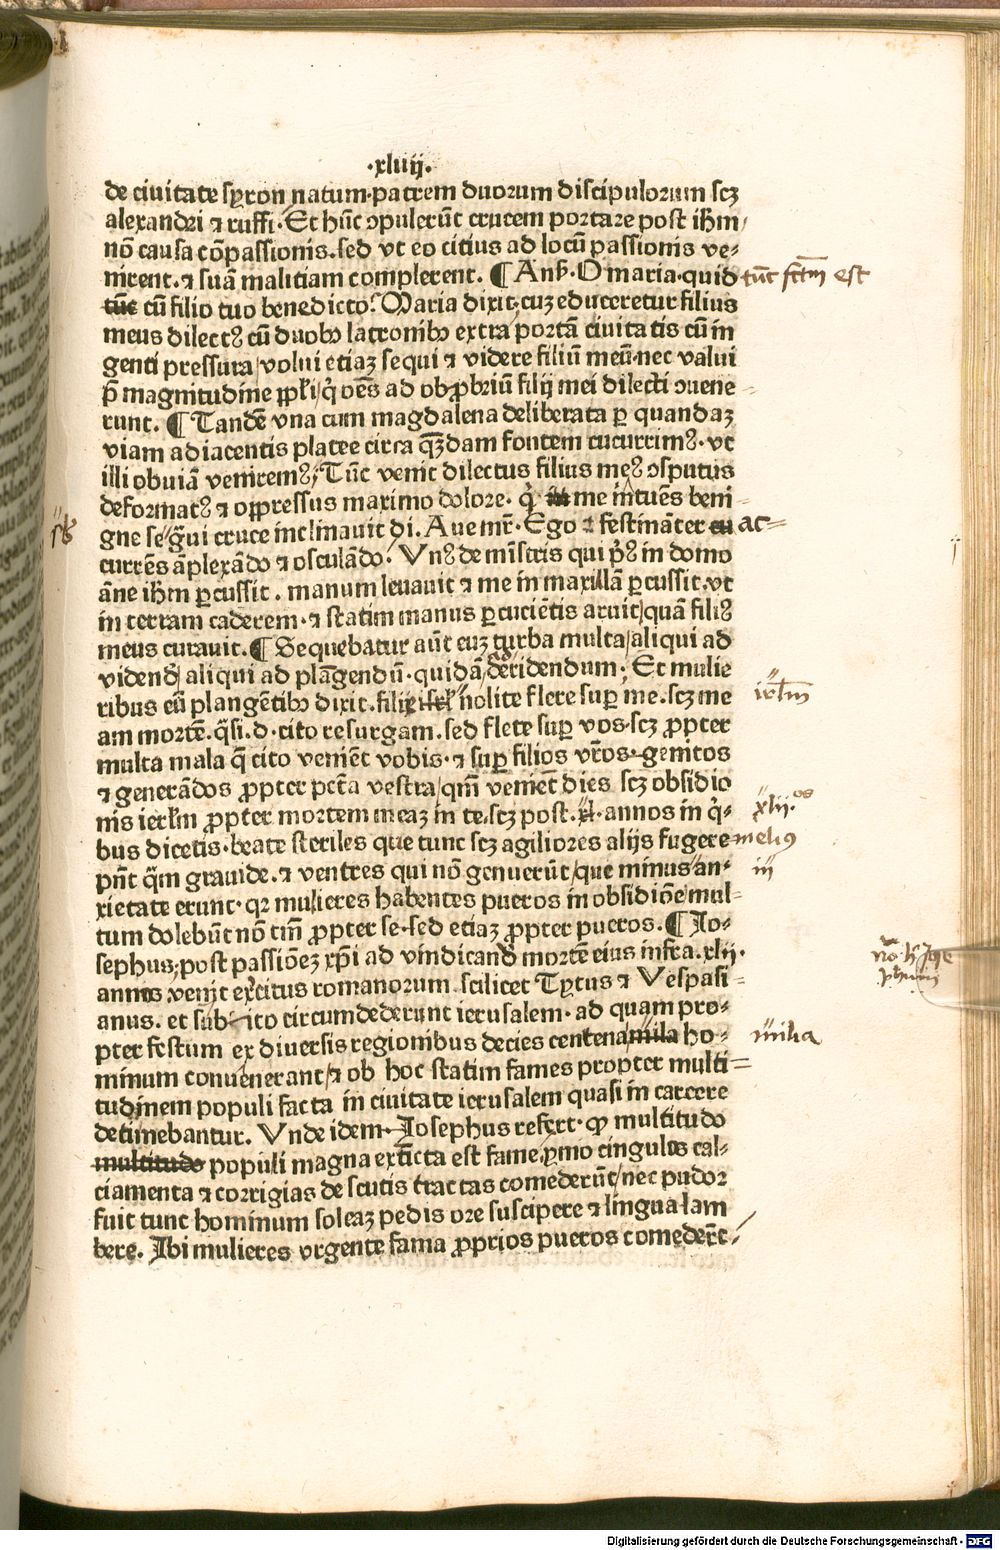 ·xliiij.
de ciuitate syron natum·patrem duorum discipulorum scꝫ
alexandri ⁊ ruffi·Et hūc ↄpulerūt crucem portare post ihm̄/
nō causa cōpassionis.sed vt eo citius ad locū passionis ve-
nirent·⁊ suā malitiam complerent. ¶ Anß·O maria·quid tūc fc̄tm est
cū filio tuo benedicto? Maria dixit·cuz educeretur filius
meus dilectꝰ cū duobꝫ latronibꝫ extra portā ciuitatis cū in
genti pressura/volui etiaz sequi ⁊ videre filiū meū·nec valui
p̄ magnitudine ppl̄i/q̇ oēs ad obꝓbriū filij mei dilecti ↄuene-
runt. ¶ Tandē vna cum magdalena deliberata ꝑ quandaz
viam adiacentis platee circa quēdam fontem cucurrimꝰ·vt
illi obuiā veniremꝰ; Tūc venit dilectus filius meꝰ ↄsputus
deformatꝰ ⁊ oppressus maximo dolore· q̇ me intuēs beni-
sub gne se gͣui cruce inclinauit di. Aue mr̄·Ego ⁊ festināter ac=
currēs āplexādo ⁊ osculādo. Vnꝰ de mīstris qui pͥꝰ in domo
āne ihm̄ ꝑcussit. manum leuauit ⁊ me in maxillā ꝑcussit·vt
in terram caderem·⁊ statim manus ꝑcuciētis aruit/quā filiꝰ
meus curauit. ¶ Sequebatur aūt euz turba multa/aliqui ad
vidend/aliqui ad plāgendū·quidā ad deridendum; Et mulie
ribus eū plangētibꝫ dixit·filie nolite flere suꝑ me·scꝫ me irl̄m
am mortē·q̄si.d·cito resurgam.sed flete suꝑ vos·scꝫ ꝓpter
multa mala q̄ cito veniēt vobis·⁊ suꝑ filios vr̄os·genitos
⁊ generādos ꝓpter pctā vestra/qm̄ venient dies scꝫ obsidio
nis ierl̄m ꝓpter mortem meaz in te·scꝫ post·annos in q̇- xlij.os
bus dicetis·beate steriles que tunc scꝫ agiliores alijs fugere melius
pn̄t q̄m grauide.⁊ ventres qui nō genuerūt/que minus an- in
xietate erunt·qꝛ mulieres habentes pueros in obsidiōe mul-
tum dolebūt nō tm̄ ꝓpter se·sed etiaz ꝓpter pueros. ¶ Io-
sephus;post passiōeꝫ xp̄i ad vindicand mortē eius infra.xlij.
annos venit exercitus romanorum scilicet Tytus ⁊ Vespasi-
anus. et subito circumdederunt ierusalem·ad quam pro-
pter festum ex diuersis regionibus decies centena ho- milia
minum conuenerant/⁊ ob hoc statim fames propter multi=
tudinem populi facta in ciuitate ierusalem quasi in carcere
detinebantur. Vnde idem Iosephus refert·ꝙ multitudo
populi magna extīcta est fame.pͥmo cingulos cal-
ciamenta ⁊ corrigias de scutis tractas comederūt/nec pudor
fuit tunc hominum soleaz pedis ore suscipere ⁊ lingua lam
bere. Ibi mulieres vrgente fama ꝓprios pueros comederēt/
Digitalisierung gefördert durch die Deutsche Forschungsgemeinschaft · DFG